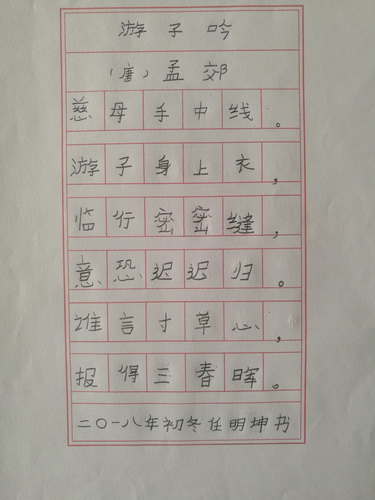 游子吟
（唐）孟郊
慈母手中线。
游子身上衣，
临行密密缝，
意恐迟迟归。
谁言寸草心，
报得三春晖。
二〇一八年初冬任明坤书